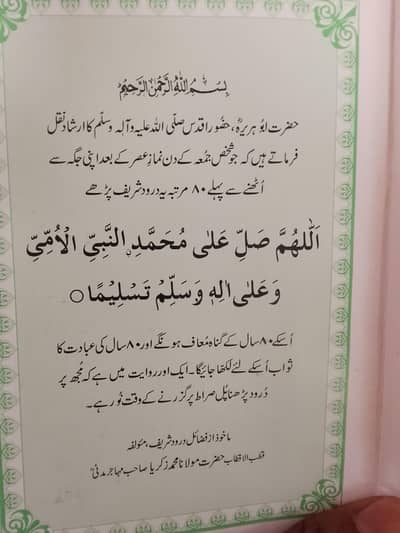 بِسْمِ اللهِ الرَّحْمٰنِ الرَّحِيْمِ
حضرت ابو ہریرہؓ، حضور اقدس صلّی اللہ علیہ و آلہ وسلّم کا ارشاد نقل
فرماتے ہیں کہ جو شخص جمعہ کے دن نمازِ عصر کے بعد اپنی جگہ سے
اُٹھنے سے پہلے ۸۰ مرتبہ یہ درود شریف پڑھے
اَللّٰهُمَّ صَلِّ عَلٰى مُحَمَّدِ ࣙالنَّبِيِّ الْاُمِّيِّ
وَعَلٰى اٰلِهٖ وَسَلِّمْ تَسْلِيْمًا ○
اُسکے ۸۰ سال کے گناہ مُعاف ہونگے اور ۸۰ سال کی عبادت کا
ثواب اُسکے لئے لکھا جائیگا۔ ایک اور روایت میں ہے کہ مُجھ پر
دُرود پڑھنا پُل صراط پر گزرنے کے وقت نُور ہے۔
ماخوذ از فضائل درود شریف، مئولفہ
قطب الاقطاب حضرت مولانا محمد زکریا صاحب مہاجر مدنیؒ